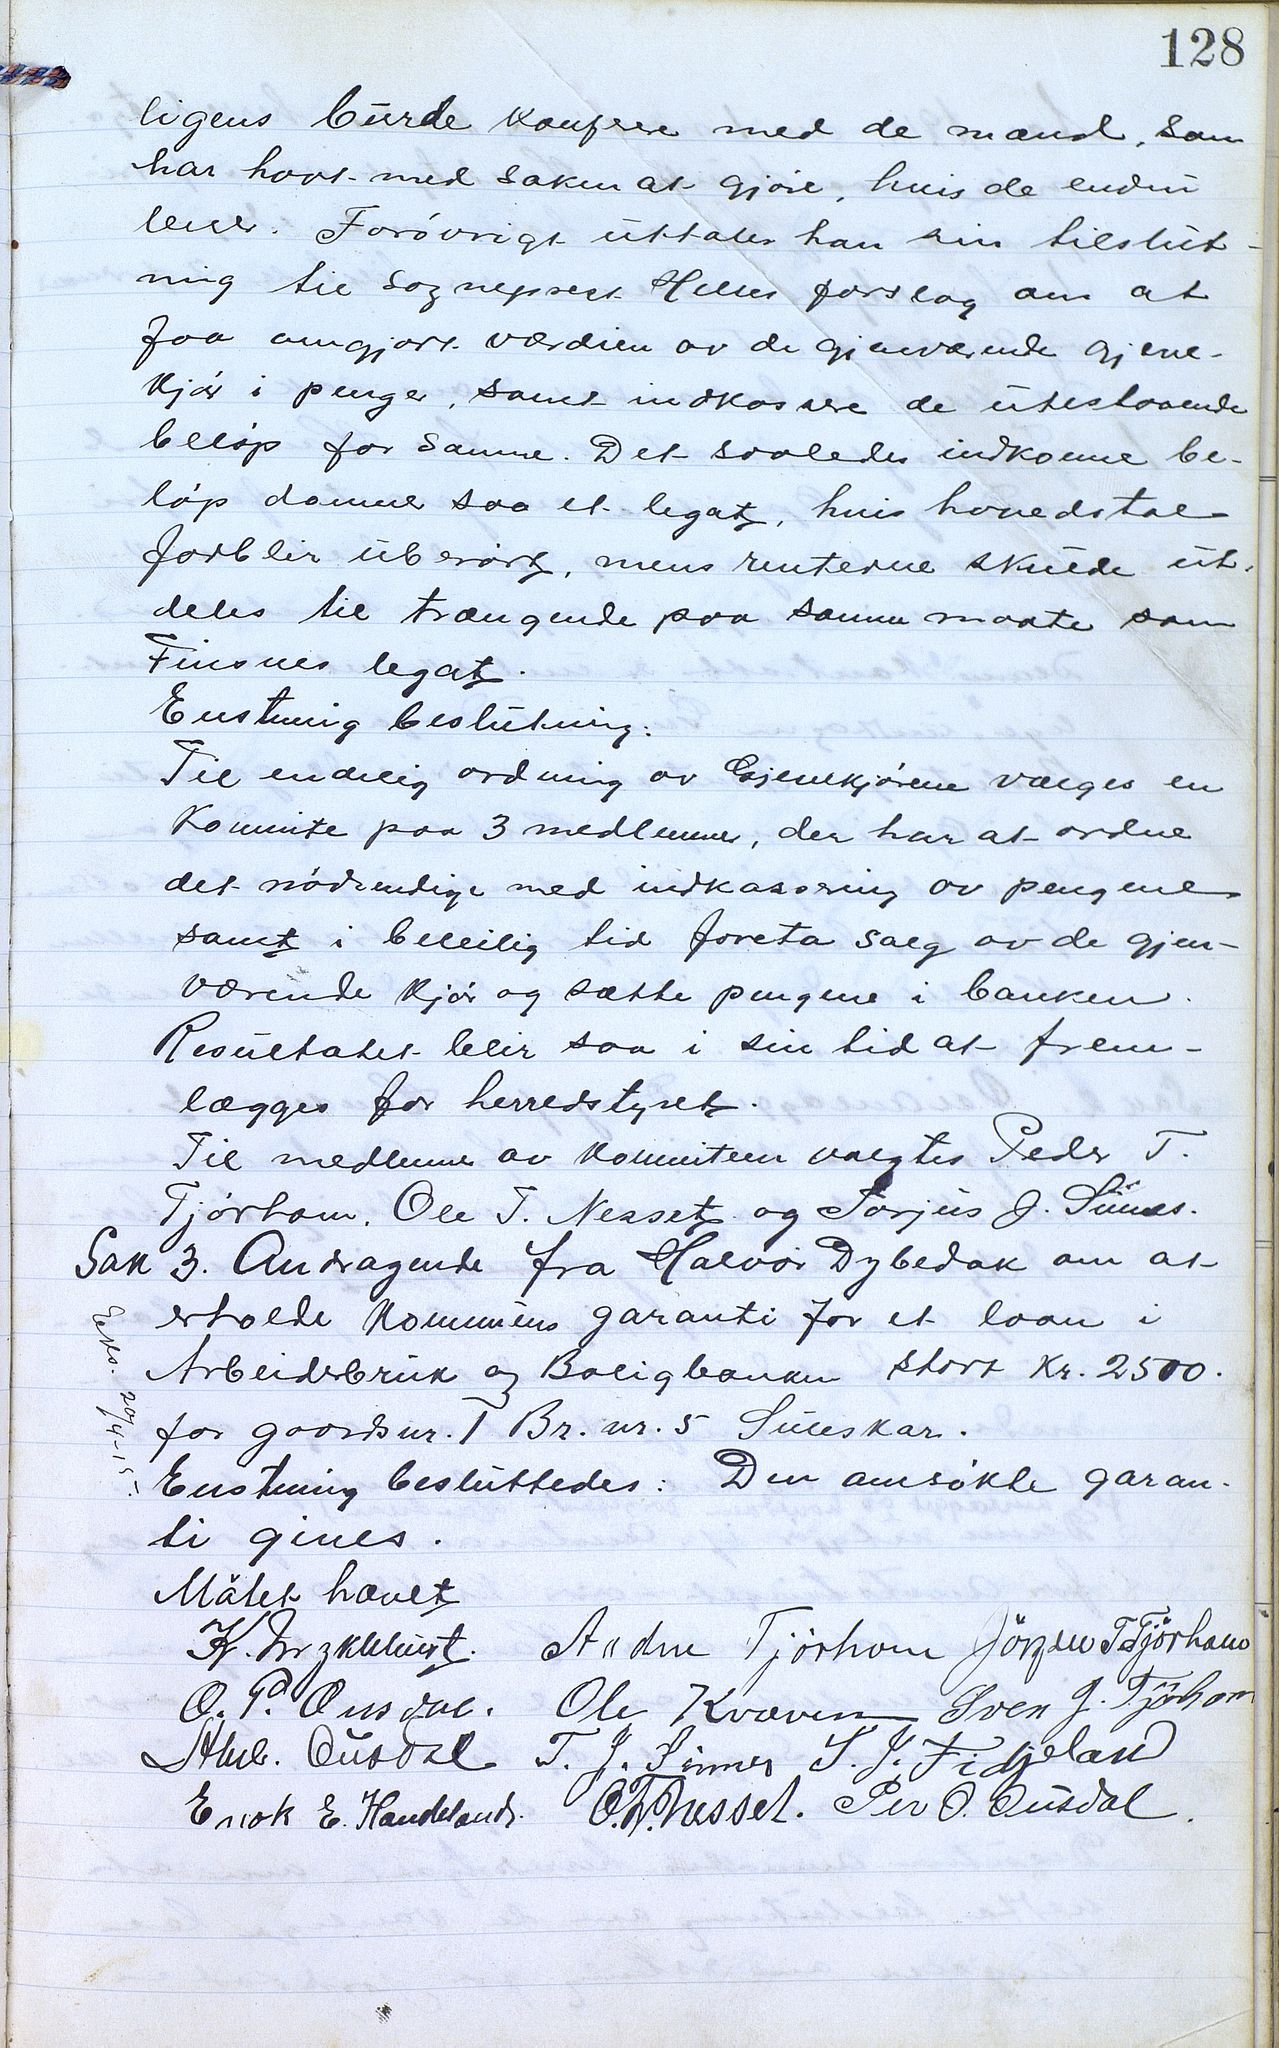 128
ligens burde konfrere med de mænd, som
har havt med saken at gjöre, hvis de endnu
lever. Forøvrigt uttaler han sin tilslut-
ning til sogneprest Helles forslag om at
faa omgjort værdien av de gjenværende gjeve-
kjör i penger, samt indkassere de utestaaende
belöp for samme. Det saaledes indkomne be-
löp danner saa et legat, hvis hovedstol
forblir uberört, mens renterne skulde ut-
deles til trængende paa samme maate som
Finsnes legat.
Enstemig beslutning:
Til endelig ordning av Gjevekjörene vælges en
Kommite paa 3 medlemmer, der har at ordne
det nödvendige med indkassering av pengene
samt i beleilig tid foreta salg av de gjen-
værende kjör og sætte pengene i banken.
Resultatet blir saa i sin tid at frem-
lægges for herredstyret.
Til medlemmer av komiteen valgtes Peder T.
Tjörhom, Ole T. Nesset og Torjus J. Sinnes.
Sak 3. Andragende fra Halvor Dybedak om at
erholde Kommunens garanti for et laan i
Arbeiderbruk og Boligbanken stort Kr. 2500.
for gaardsnr. 1 Br. nr. 5 Suleskar.
Eks. 20/4-15.
Enstemig besluttedes: Den ansökte garan-
ti gives.
Mötet hævet
K. Brykkelhurst. Andru Tjörhom Jörgen T Tjörhom
O. P. Ousdal. Ole Kvæven Sven J. Tjörhom
Ousdal T. J. Sinnes S. J. Fidjeland
Enok E. Handeland. O. T. Nesset. Per O. Ousdal.